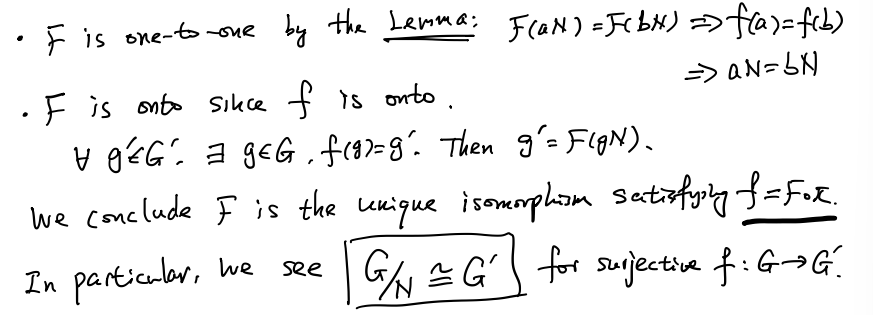 · F is one-to-one by the Lemma: F(aN) = F(bN) ⇒ f(a)=f(b)
⇒ aN=bN
· F is onto since f is onto.
∀ g'∈G'. ∃ g∈G, f(g)=g'. Then g' = F(gN).
We conclude F is the unique isomorphism satisfying f = F∘π.
In particular, we see G/N ≅ G' for surjective f: G→G'.